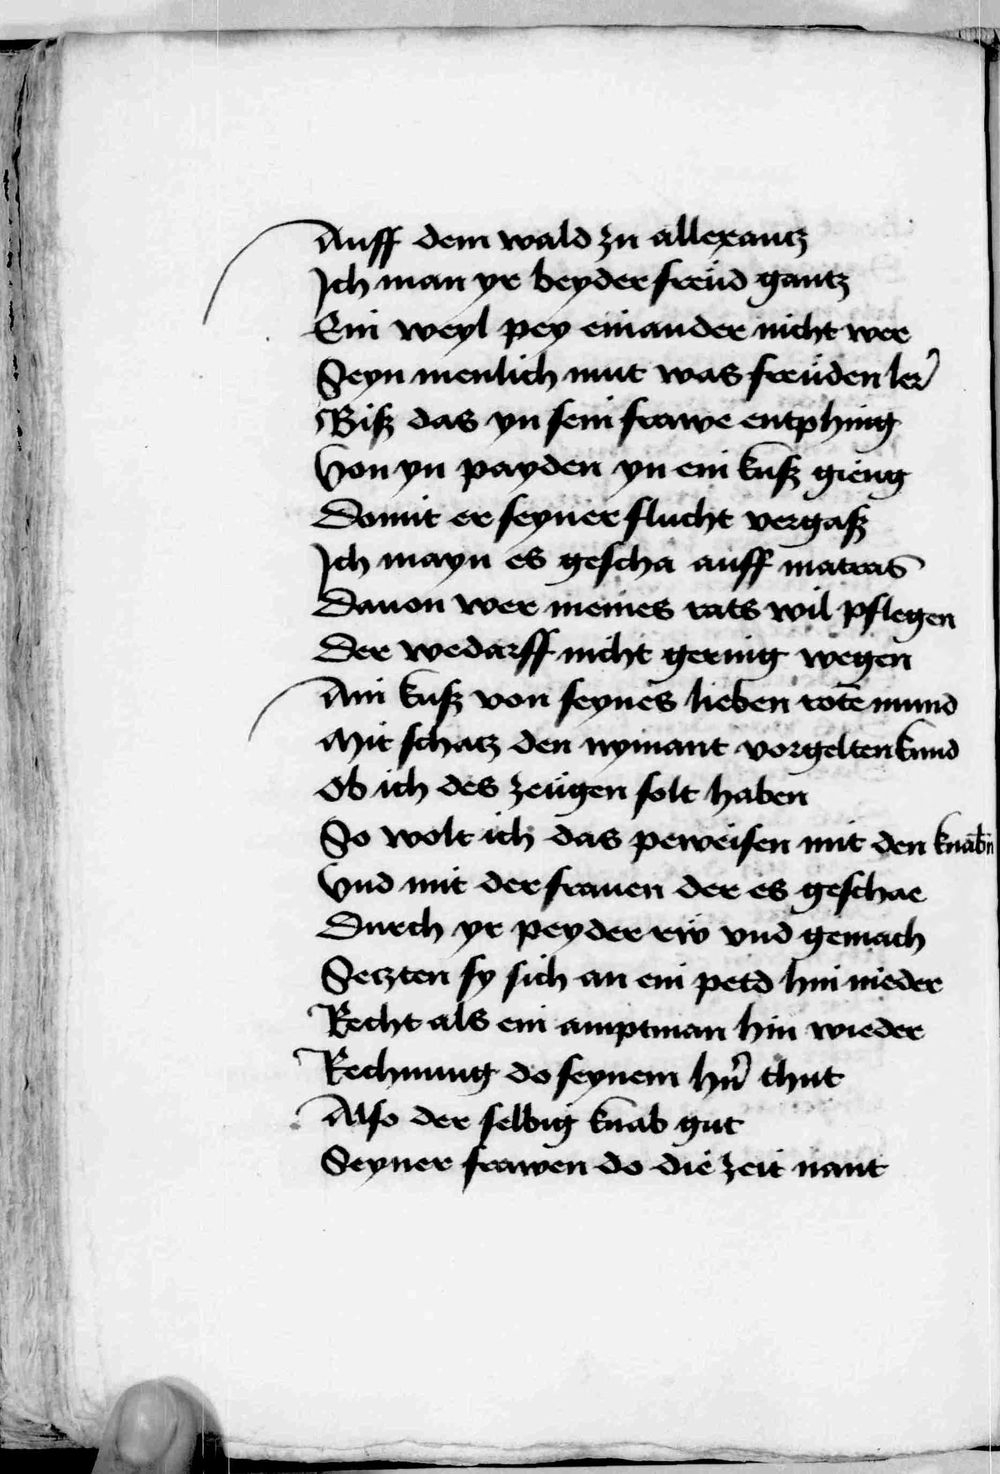 Auff dem wald zu allexantz
Ich man yr beyder freüd gantz
Ein weyl pey einander nicht wer
Seyn menlich mut was freüden ler̉
Biß das yn sein frawe entphing
Von yn payden yn ein kuß gieng
Domit er seyner flucht vergaß
Ich mayn es gescha auff matras
Dauon wer meines rats wil pflegen
Der wedarff nicht gering wegen
Ain kuß von seynes lieben rotē mund
Mit schatz den nymant vorgelten kund
Ob ich des zeügen solt haben
So wolt ich das peweisen mit den knabn̄
Vnd mit der frauen der es geschae
Durch yr peyder rẅ vnd gemach
Setzten sy sich an ein petd hin nieder
Recht als ein amptman hin wieder
Rechnung do seynem hn̉ thut
Also der selbig knab gut
Seyner frawen do die zeit nant